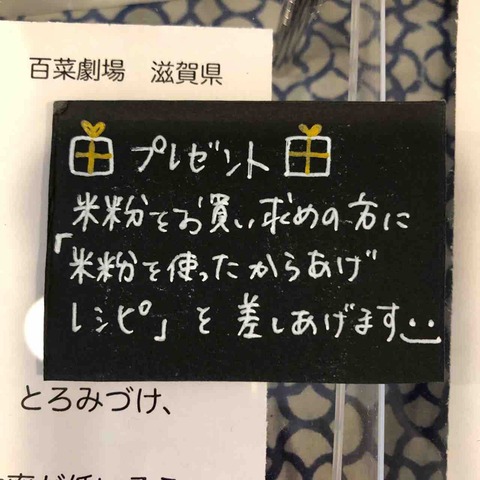 百菜劇場　滋賀県
プレゼント
米粉をお買い求めの方に
「米粉を使ったからあげ
レシピ」を差しあげます
とろみづけ、